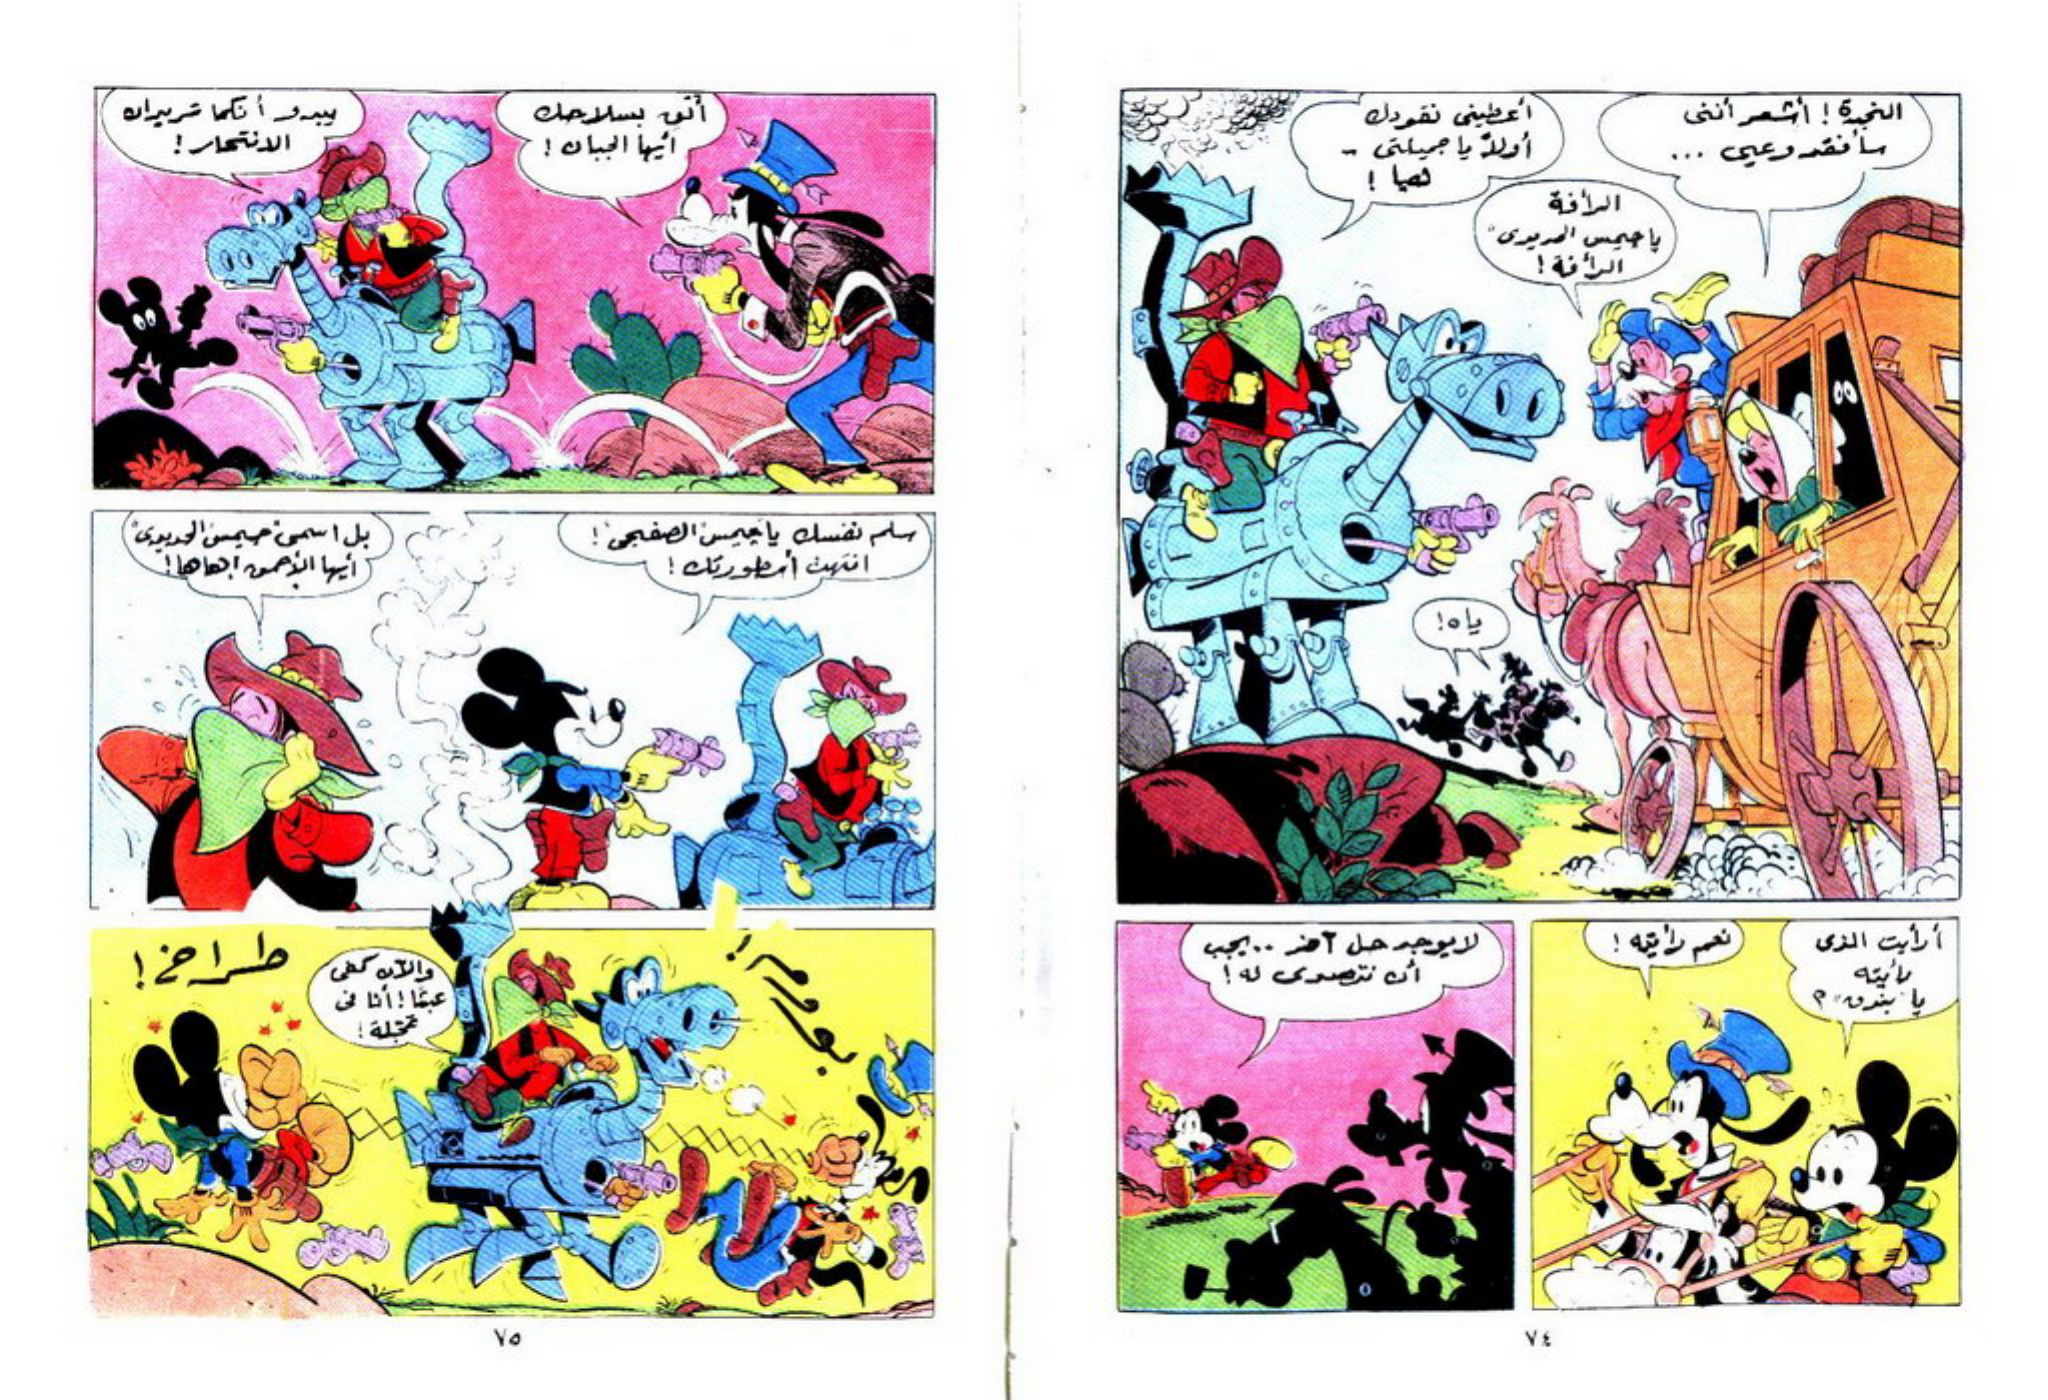 النجدة ! أشعر أننى
سأفقد وعيى ...
أعطينى نقودك
أولاً يا جميلتى ..
هيا !
الرأفة
يا جيمس الحديدى"
الرأفة !
ياه !
أرأيت الذى
رأيته
يا "بندق" ؟
نعم رأيته !
لا يوجد حل آخر .. يجب
أن نتصدى له !
٧٤
ألق بسلاحك
أيها الجبان !
يبدو أنكما تريدان
الانتحار !
سلم نفسك يا "جيمس الصفيحى" !
انتهت أسطورتك !
بل اسمى "جيمس الحديدى"
أيها الأحمق ! هاها !
والآن كفى
عبثا ! أنا فى
عجلة !
طراخ !
٧٥